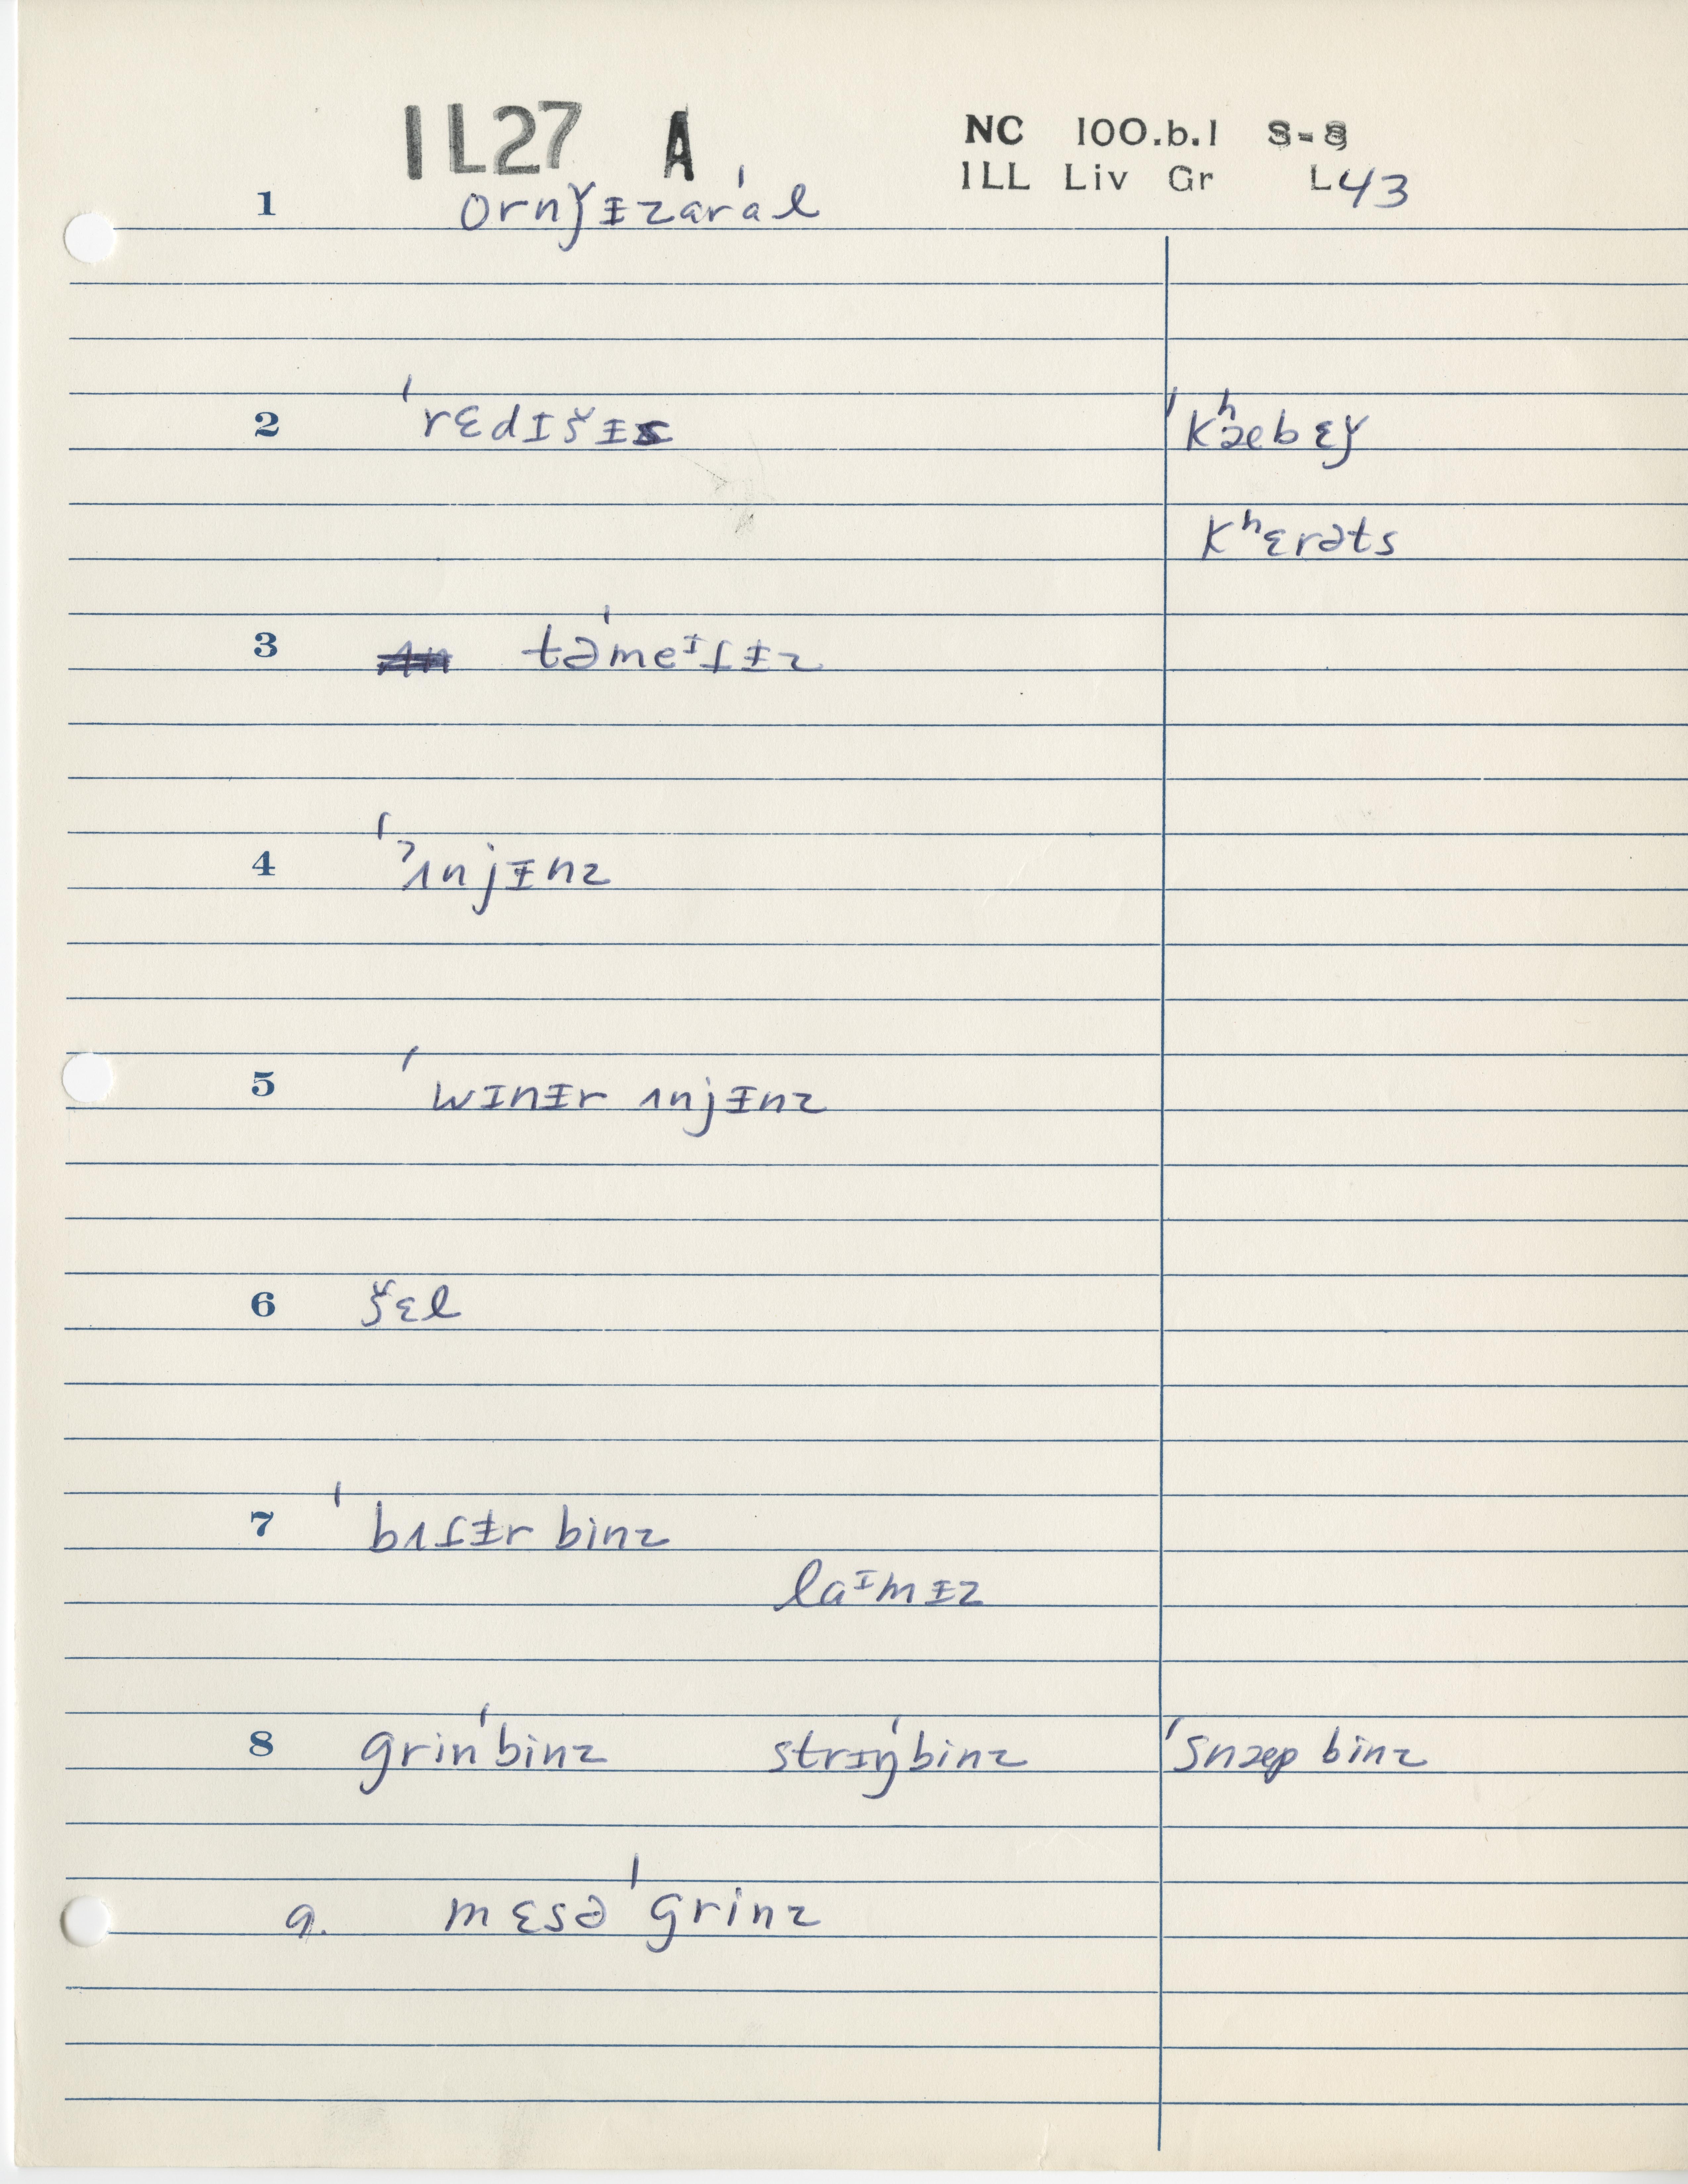 IL27 A
NC 100.b.1 S-8
ILL Liv Gr L43
1 ornǰᵻzar'al
2 'rɛdɪšᵻs 'kʰæbɛǰ
kʰɛrəts
3 tə'meᶦɾᵻz
4 'ˀʌnjᵻnz
5 'wɪnᵻr ʌnjᵻnz
6 šɛl
7 'bʌɾᵻr binz
laᶦmᵻz
8 grin'binz strɪŋ'binz 'snæp binz
9. mɛsə 'grinz